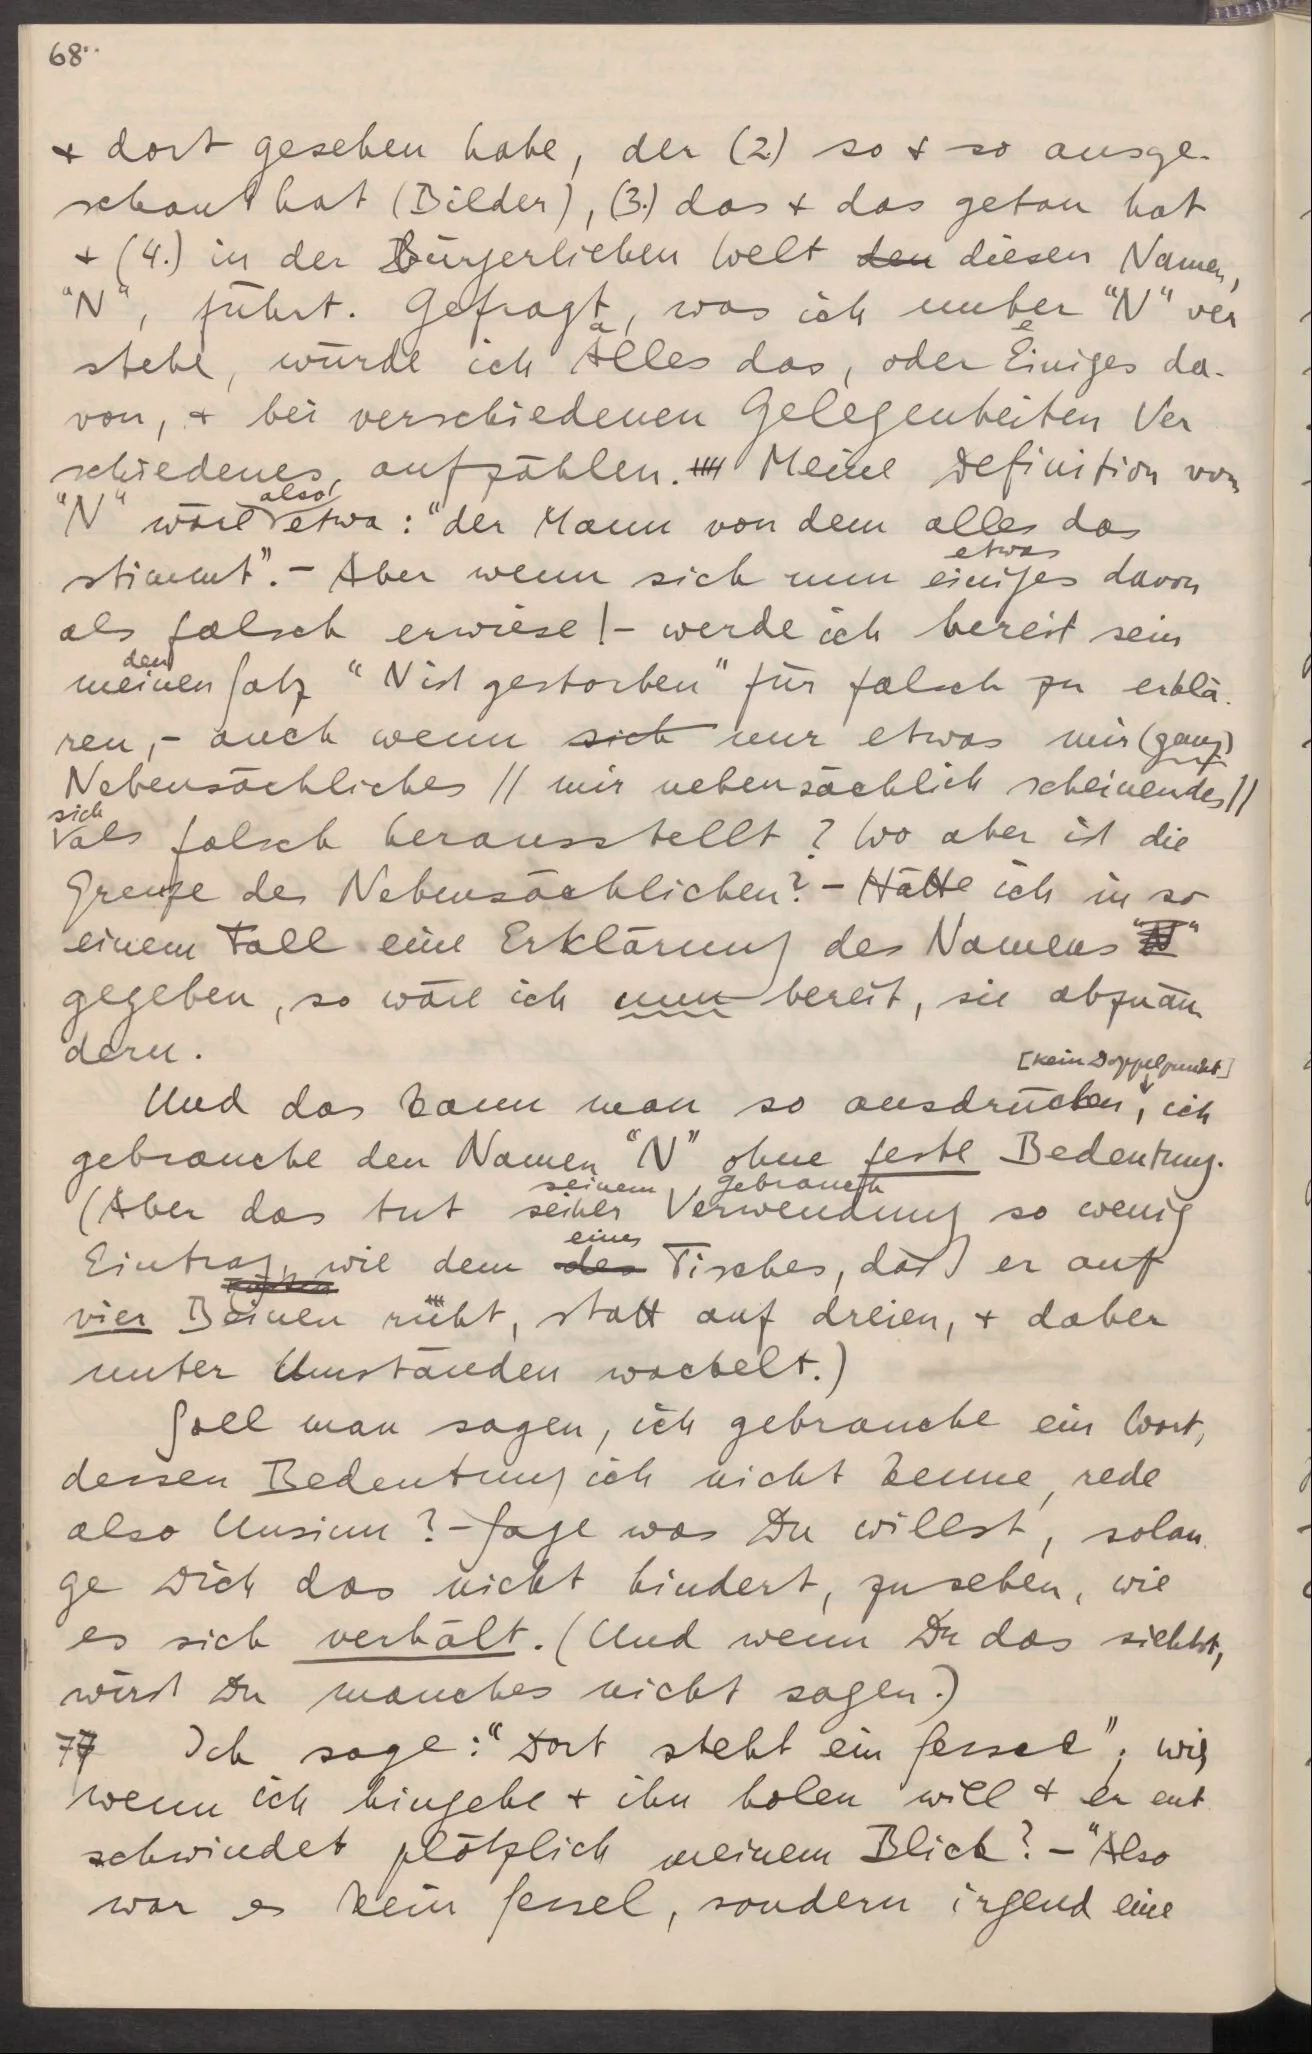 68
+ dort gesehen habe, der (2.) so + so ausge-
schaut hat (Bilder), (3.) das + das getan hat
+ (4.) in der bürgerlichen Welt den diesen Namen,
"N", führt. Gefragt, was ich unter "N" ver
a e
stehe, würde ich Alles das, oder Einiges da-
von, + bei verschiedenen Gelegenheiten Ver
schiedenes, aufzählen. Meine Definition von
also
"N" wäre etwa: "der Mann von dem alles das
etwas
stimmt". – Aber wenn sich nun einiges davon
als falsch erwiese! – werde ich bereit sein
den
meinen Satz "N ist gestorben" für falsch zu erklä-
ren, – auch wenn sich nur etwas mir (ganz)
Nebensächliches // mir nebensächlich scheinendes //
sich
als falsch herausstellt? Wo aber ist die
Grenze des Nebensächlichen? – Hätte ich in so
einem Fall eine Erklärung des Namens "N"
gegeben, so wäre ich nun bereit, sie abzuän
dern.
[kein Doppelpunkt]
Und das kann man so ausdrücken, ich
gebrauche den Namen "N" ohne feste Bedeutung.
seinem Gebrauch
(Aber das tut seiner Verwendung so wenig
eines
Eintrag, wie dem des Tisches, daß er auf
vier Beinen ruht, statt auf dreien, + daher
unter Umständen wackelt.)
Soll man sagen, ich gebrauche ein Wort,
dessen Bedeutung ich nicht kenne, rede
also Unsinn? – Sage was Du willst, solan-
ge Dich das nicht hindert, zu sehen, wie
es sich verhält. (Und wenn Du das siehst,
wirst Du manches nicht sagen.)
77 Ich sage: "Dort steht ein Sessel"; wie,
wenn ich hingehe + ihn holen will + er ent
schwindet plötzlich meinem Blick? – "Also
war es kein Sessel, sondern irgend eine